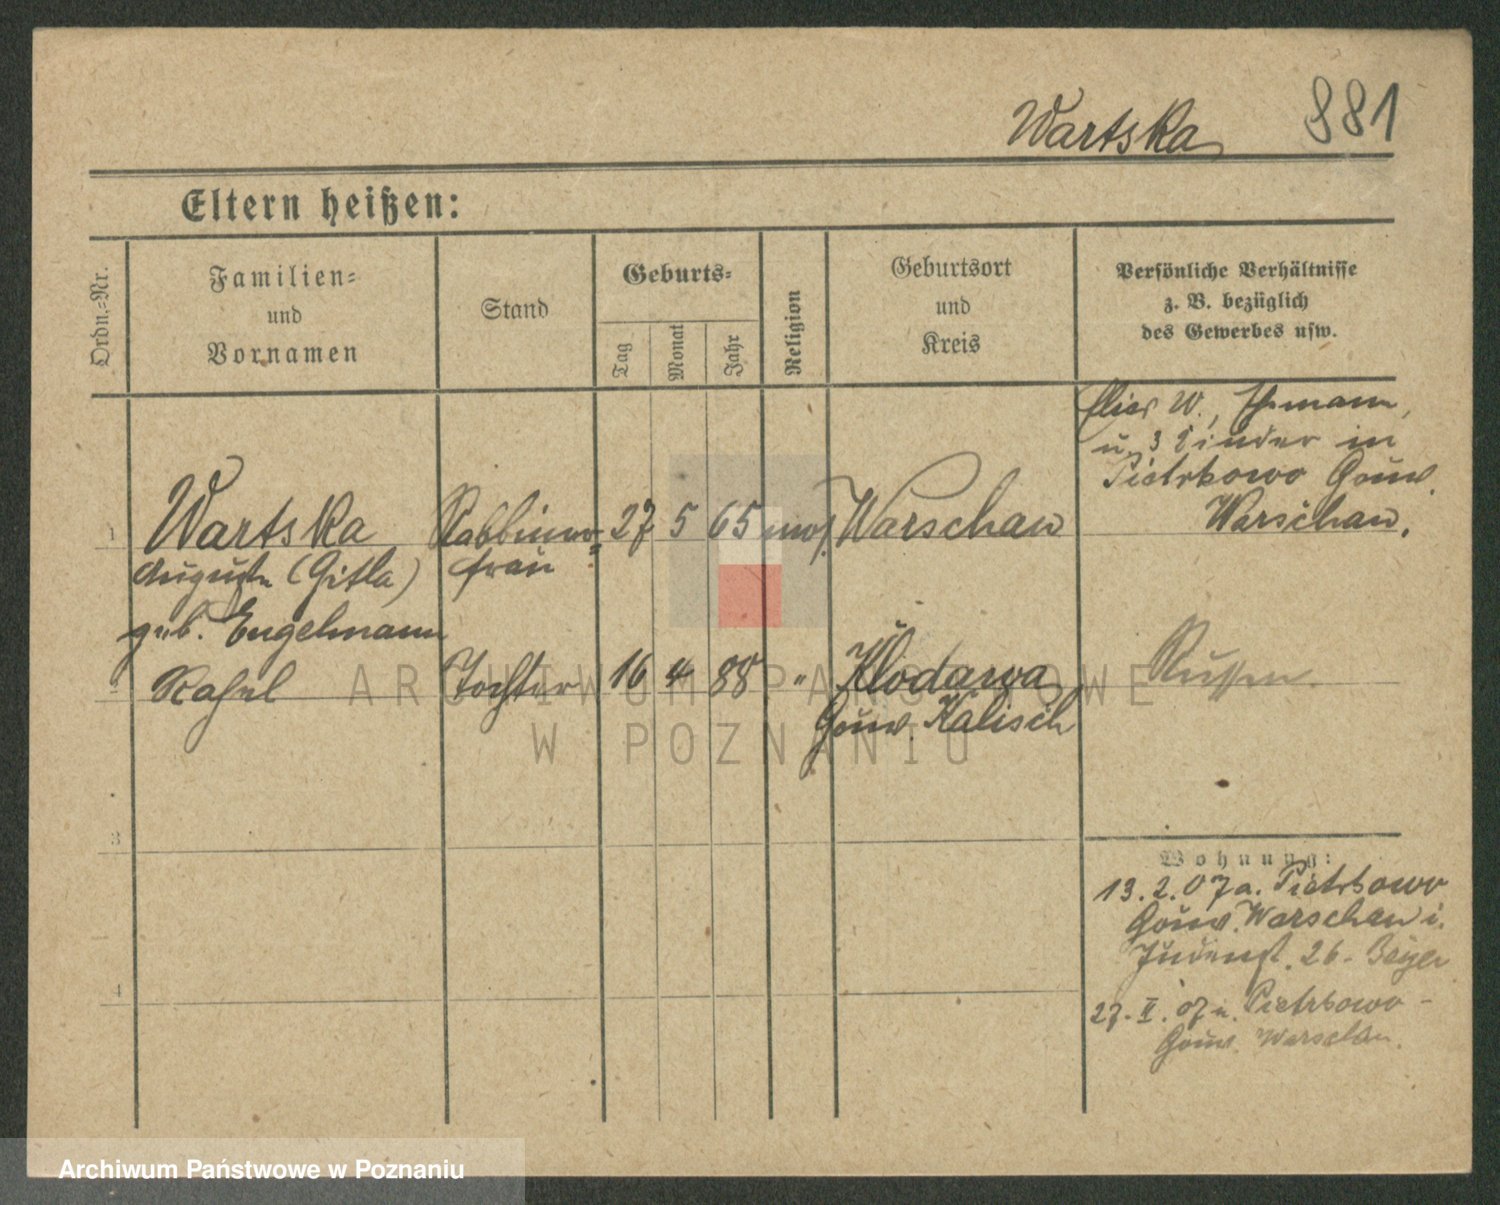 Wartska 881
Eltern heißen:
Ordn.=Nr.
Familien=
und
Vornamen
Stand
Geburts=
Tag
Monat
Jahr
Religion
Geburtsort
und
Kreis
Persönliche Verhältnisse
z. B. bezüglich
des Gewerbes usw.
Elias W., Ehemann,
u. 3 Kinder in
Pietrkowo Gouv.
Warschau.
1 Wartska Rabbiner= 27 5 65 mos. Warschau
Auguste (Gitla) frau
geb. Engelmann
2 Rahel Tochter 16 4 88 " Klodawa Russen.
Gouv. Kalisch
3
4
Wohnung:
13.2.07 a. Pietrkowo
Gouv. Warschau i.
Judenst. 26 - Beyer
27. II. 07 n. Pietrkowo -
Gouv. Warschau.
ARCHIWUM PAŃSTWOWE
W POZNANIU
Archiwum Państwowe w Poznaniu